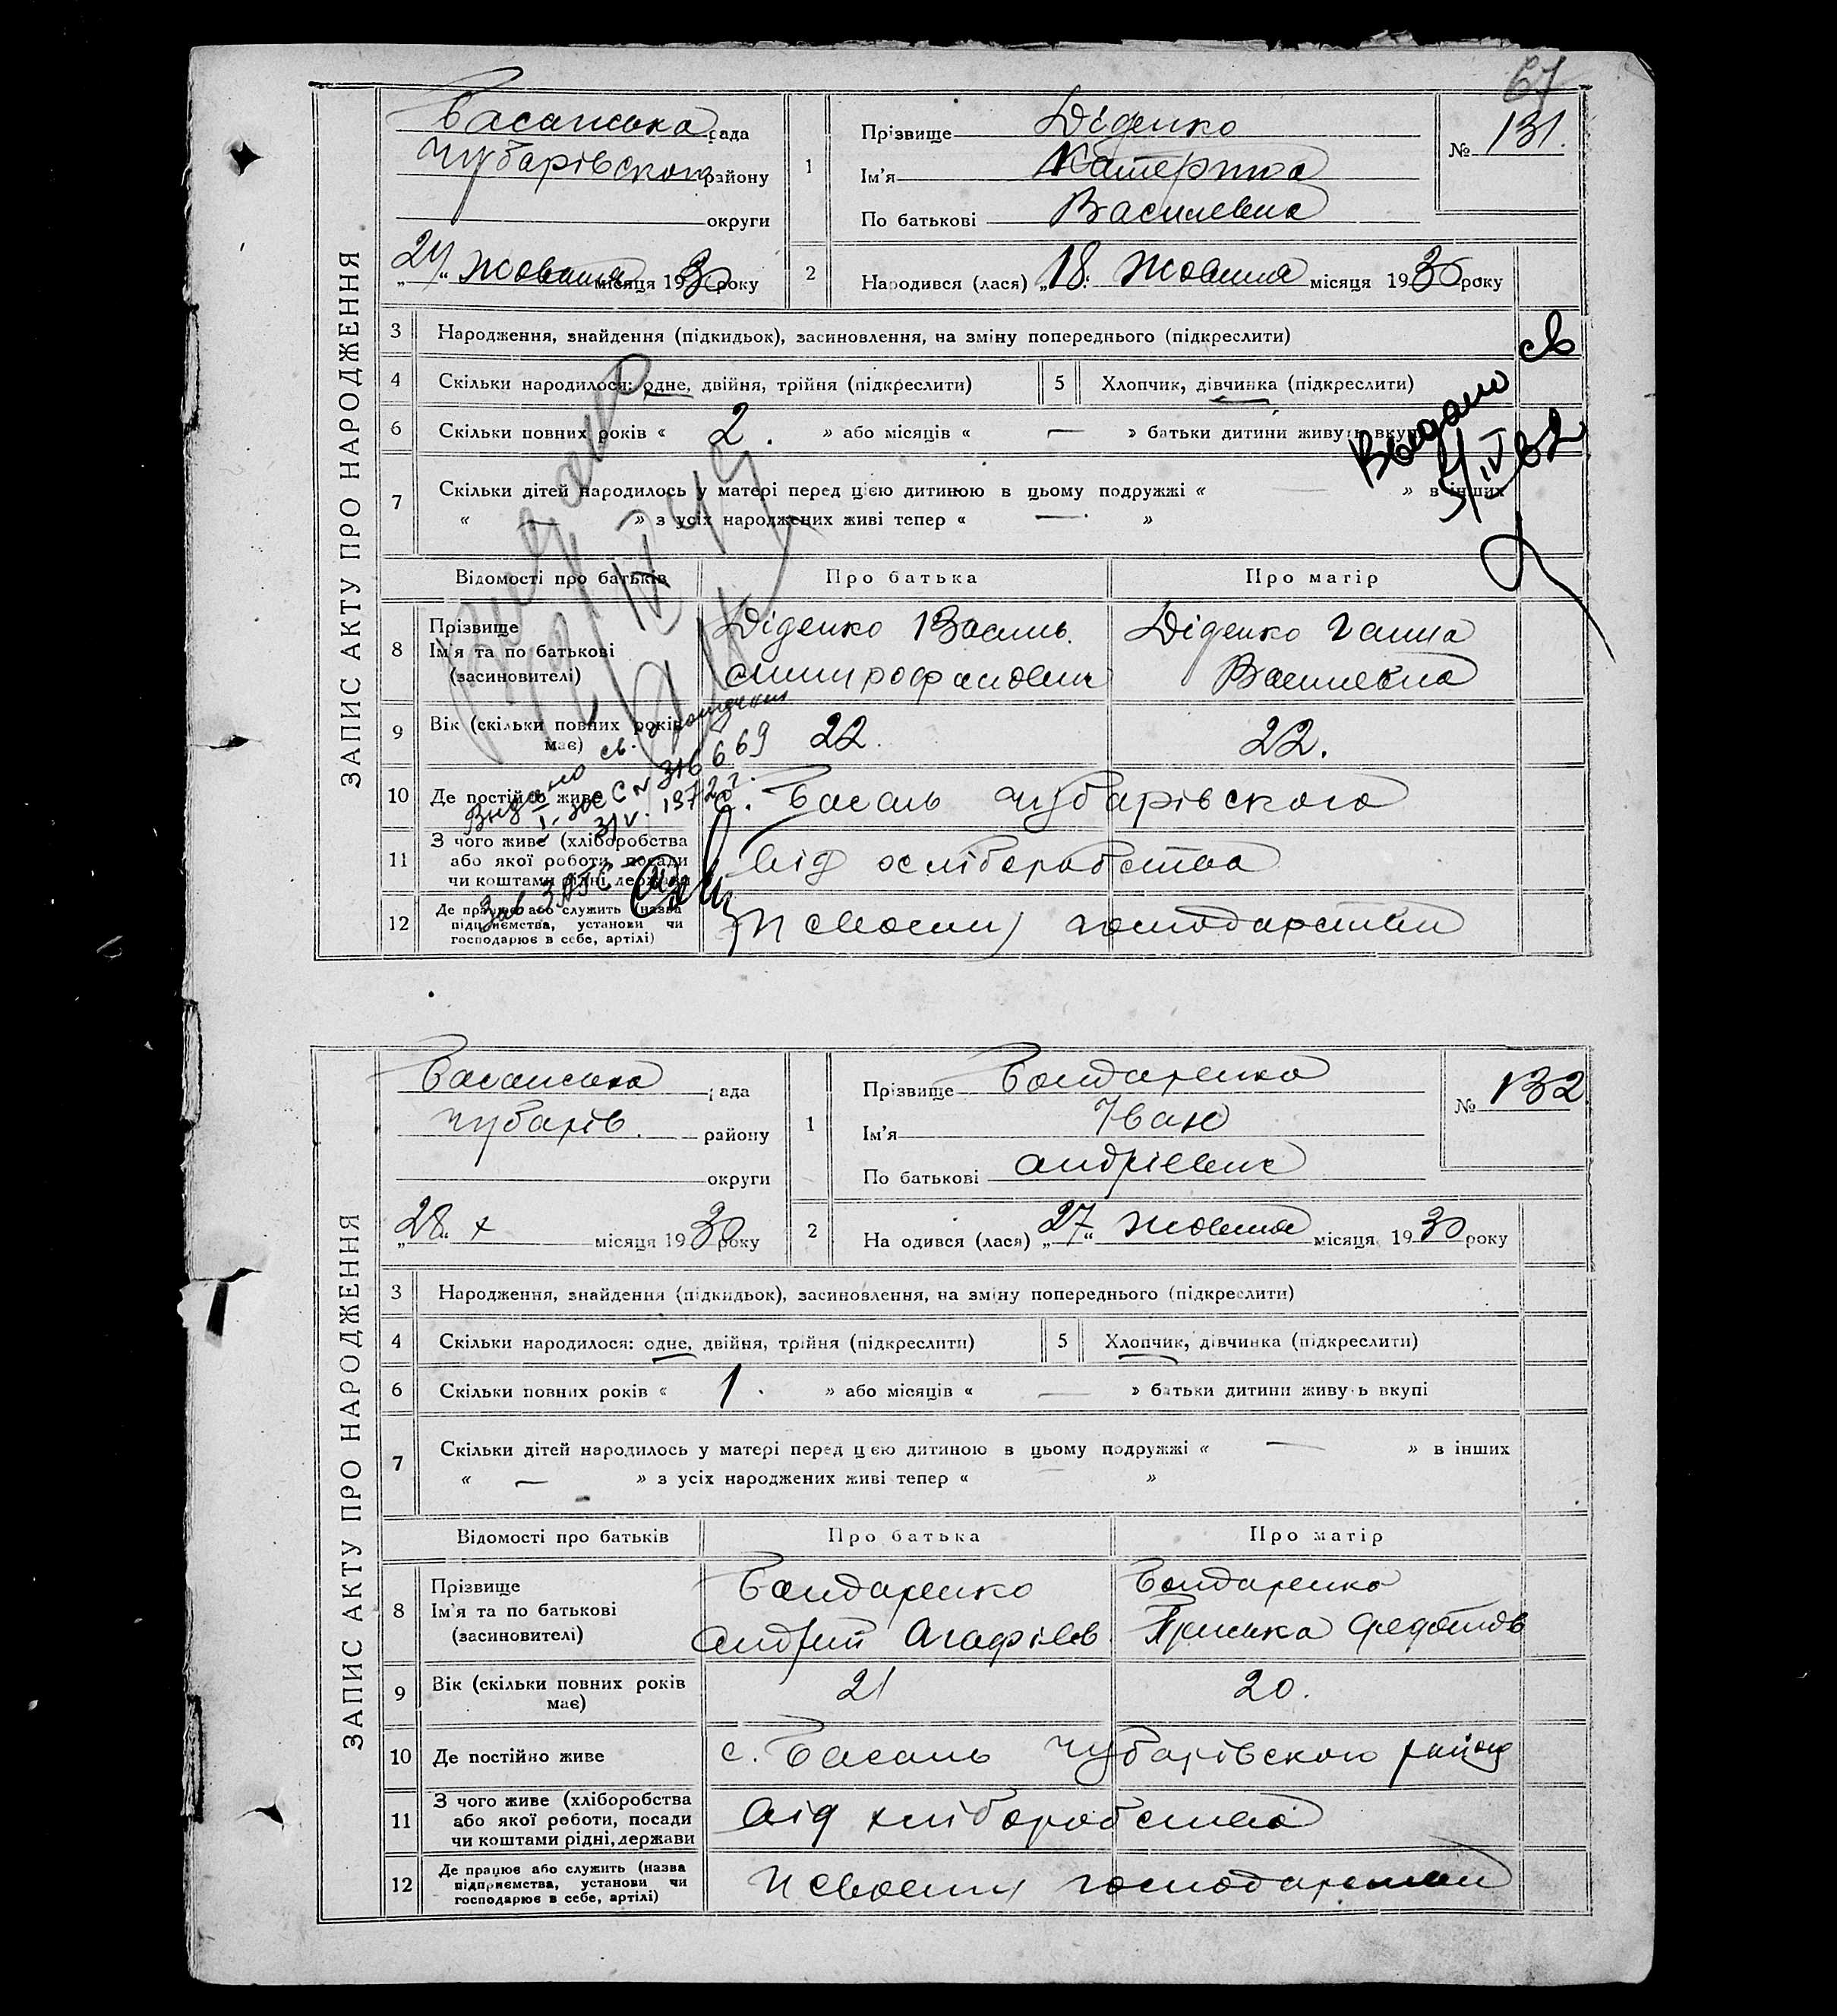 67
ЗАПИС АКТУ ПРО НАРОДЖЕННЯ
Басанська рада
Чубарівского району
округи
„24“ Жовтня місяця 1930 року
1
Прізвище Діденко
Ім'я Катерина
По батькові Василевна
№ 131.
2
Народився (лася) „18“ Жовтня місяця 1930 року
3 Народження, знайдення (підкидьок), засиновлення, на зміну попереднього (підкреслити)
св
4 Скільки народилося: одне, двійня, трійня (підкреслити)
5 Хлопчик, дівчинка (підкреслити)
6 Скільки повних років « 2. » або місяців « — » батьки дитини живуть вкупі
Выдано
5/IV
7 Скільки дітей народилось у матері перед цією дитиною в цьому подружжі « — » в інших
« — » з усіх народжених живі тепер « — »
Відомості про батьків
Про батька
Про матір
8 Прізвище
Ім'я та по батькові
(засиновителі)
Діденко Василь
Митрофанович
Діденко Ганна
Василевна
9 Вік (скільки повних років
має)
22.
22.
10 Де постійно живе
с. Басань Чубарівского
11 З чого живе (хліборобства
або якої роботи, посади
чи коштами рідні, держави
Від хліборобства
12 Де працює або служить (назва
підприємства, установи чи
господарює в себе, артілі)
и своему господарстви
Видано св.
316669
197
Зав ЗАГС
ЗАПИС АКТУ ПРО НАРОДЖЕННЯ
Басанська рада
Чубарів. району
округи
„28“ X місяця 1930 року
1
Прізвище Бондаренко
Ім'я Іван
По батькові Андрієвич
№ 132
2
На одився (лася) „27“ Жовтня місяця 1930 року
3 Народження, знайдення (підкидьок), засиновлення, на зміну попереднього (підкреслити)
4 Скільки народилося: одне, двійня, трійня (підкреслити)
5 Хлопчик, дівчинка (підкреслити)
6 Скільки повних років « 1. » або місяців « — » батьки дитини живуть вкупі
7 Скільки дітей народилось у матері перед цією дитиною в цьому подружжі « — » в інших
« — » з усіх народжених живі тепер « — »
Відомості про батьків
Про батька
Про матір
8 Прізвище
Ім'я та по батькові
(засиновителі)
Бондаренко
Андрій Агафієв
Бондаренко
Приська Федотов
9 Вік (скільки повних років
має)
21
20.
10 Де постійно живе
с. Басань Чубарівского району
11 З чого живе (хліборобства
або якої роботи, посади
чи коштами рідні, держави
Від хліборобства
12 Де працює або служить (назва
підприємства, установи чи
господарює в себе, артілі)
и своему господарстви